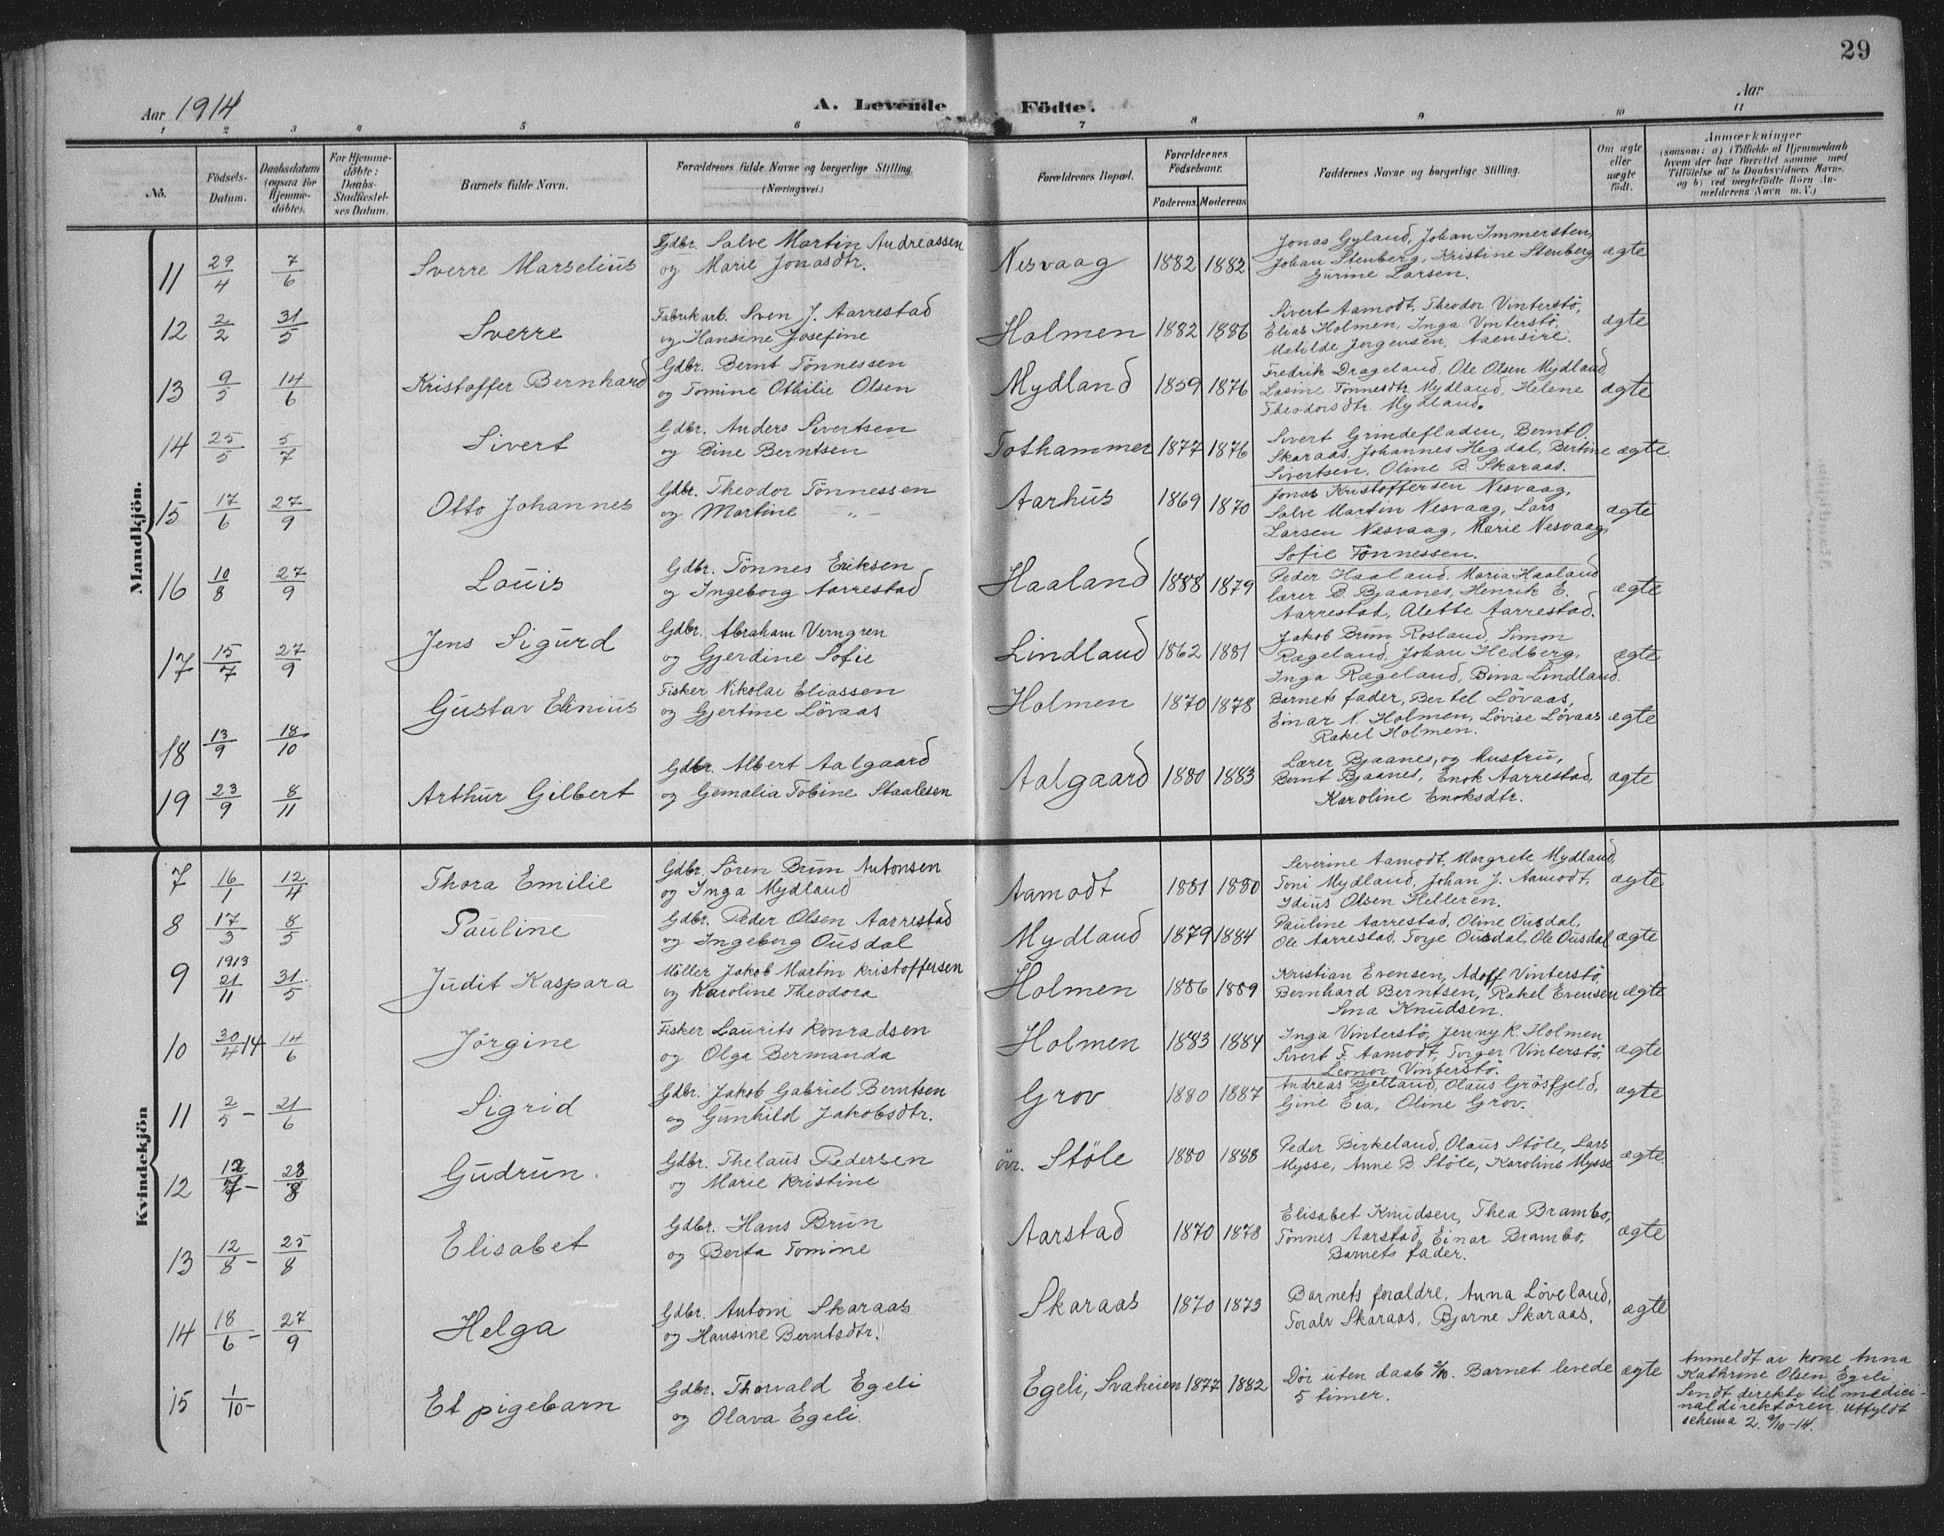 29
Aar 1914
A. Levende Födte.
Aar
1 2 3 4 5 6 7 8 9 10 11
No.
Födsels-Datum.
Daabsdatum (ogsaa for Hjemme-döbte).
For Hjemme-döbte: Daabs-Stadfæstel-ses Datum.
Barnets fulde Navn.
Forældrenes fulde Navne og borgerlige Stilling. (Næringsvei.)
Forældrenes Bopæl.
Forældrenes Födselsaar.
Faderens. Moderens.
Faddernes Navne og borgerlige Stilling.
Om ægte eller uægte født.
Anmærkninger
(saasom: a) i Tilfælde af Hjemmedaab
hvem der har forrettet samme med
Tilföielse af to Daabsvidners Navne,
og b) ved uægtefödte Börn An-
melderens Navn m. V.)
Mandkjön.
11 29/4 7/6 Sverre Marselius Gdbr. Salve Martin Andreassen
og Marie Jonasdtr. Nesvaag 1882 1882 Jonas Gyland, Johan Immersten,
Johan Stenberg, Kristine Stenberg
Gurine Larsen. ægte
12 2/2 31/5 Sverre Fabrikarb. Sven J. Aarrestad
og Hansine Josefine Holmen 1882 1886 Sivert Aamodt, Theodor Vinterstö,
Elias Holmen, Inga Vinterstö,
Matilde Jorgensen, Aaensire. ægte
13 9/5 14/6 Kristoffer Bernhard Gdbr. Bernt Tönnessen
og Tomine Othilie Olsen Mydland 1859 1876 Fredrik Drageland, Ole Olsen Mydland
Lasine Tönnesdtr. Mydland, Helene
Theodorsdtr. Mydland. ægte
14 25/5 5/7 Sivert Gdbr. Anders Sivertsen
og Bine Berntsen Tothammer 1877 1876 Sivert Grindefladen, Bernt O.
Skaraas, Johannes Hegdal, Bertine
Sivertsen, Oline B. Skaraas. ægte.
15 17/6 27/9 Otto Johannes Gdbr. Theodor Tönnessen
og Martine —„— Aarhus 1869 1870 Jonas Kristoffersen Nesvaag,
Salve Martin Nesvaag, Lars
Larsen Nesvaag, Marie Nesvaag,
Sofie Tönnessen. ægte
16 10/8 27/9 Louis Gdbr. Tönnes Eriksen
og Ingeborg Aarrestad Haaland 1888 1879 Peder Haaland, Maria Haaland
lærer B. Bjaanes, Henrik E.
Aarrestad, Alette Aarrestad. ægte
17 15/7 27/9 Jens Sigurd Gdbr. Abraham Verngren
og Gjerdine Sofie Lindland 1862 1881 Jakob Brun Rosland, Simon
Rægeland, Johan Hedberg,
Inga Rægeland, Bina Lindland. ægte
18 13/9 18/10 Gustav Elenius Fisker Nikolai Eliassen
og Gjertine Lövaas Holmen 1870 1878 Barnets fader, Bertel Lövaas,
Einar N. Holmen, Lovise Lövaas
Rakel Holmen. ægte
19 23/9 8/11 Arthur Gilbert Gdbr. Albert Aalgaard
og Gemalia Tobine Staalesen Aalgaard 1880 1883 Lærer Bjaanes, og hustru,
Bernt Bjaanes, Enok Aarrestad,
Karoline Enoksdtr. ægte
Kvindekjön
7 16/1 12/4 Thora Emilie Gdbr. Sören Brun Antonsen
og Inga Mydland Aamodt 1881 1880 Severine Aamodt, Margrete Mydland,
Toni Mydland, Johan J. Aamodt,
Idius Olsen Helleren. ægte
8 17/3 8/5 Pauline Gdbr. Peder Olsen Aarrestad
og Ingeborg Ousdal Mydland 1879 1884 Pauline Aarrestad, Oline Ousdal,
Ole Aarrestad, Torje Ousdal, Ole Ousdal ægte
9 1913 21/11 31/5 Judit Kaspara Möller Jakob Martin Kristoffersen
og Karoline Theodora Holmen 1886 1889 Kristian Evensen, Adolf Vinterstö,
Bernhard Berntsen, Rakel Evensen
Sina Knudsen. ægte
10 30/4 14 14/6 Jörgine Fisker Laurits Konradsen
og Olga Bermanda Holmen 1883 1884 Inga Vinterstö, Jenny K. Holmen
Sivert F. Aamodt, Torger Vinterstö,
Leonor Vinterstö. ægte
11 2/5 – 21/6 Sigrid Gdbr. Jakob Gabriel Berntsen
og Gunhild Jakobsdtr. Grov 1880 1887 Andreas Bjelland, Olaus Grösfjeld,
Gine Eia, Oline Grov. ægte
12 12/7 – 23/8 Gudrun. Gdbr. Thelaus Pedersen
og Marie Kristine övr. Stöle 1880 1888 Peder Birkeland, Olaus Stöle, Lars
Mysse, Anne B. Stöle, Karoline Mysse ægte.
13 12/8 – 25/8 Elisabet Gdbr. Hans Brun
og Berta Tomine Aarstad 1870 1878 Elisabet Knudsen, Thea Brambo,
Tönnes Aarstad, Einar Brambo,
Barnets fader. ægte
14 18/6 – 27/9 Helga Gdbr. Antoni Skaraas
og Hansine Berntsdtr. Skaraas 1870 1873 Barnets forældre, Anna Löveland,
Toralv Skaraas, Bjarne Skaraas. ægte
15 1/10 – Et pigebarn Gdbr. Thorvald Egeli
og Olava Egeli. Egeli, Svaheien 1877 1882 Dör uten daab. Barnet levede
5 timer. ægte Anmeldt av kone Anna
Kathrine Olsen Egeli.
Sendt direkte til medici-
naldirektören utfyldt
schema 2. 9/10-14.